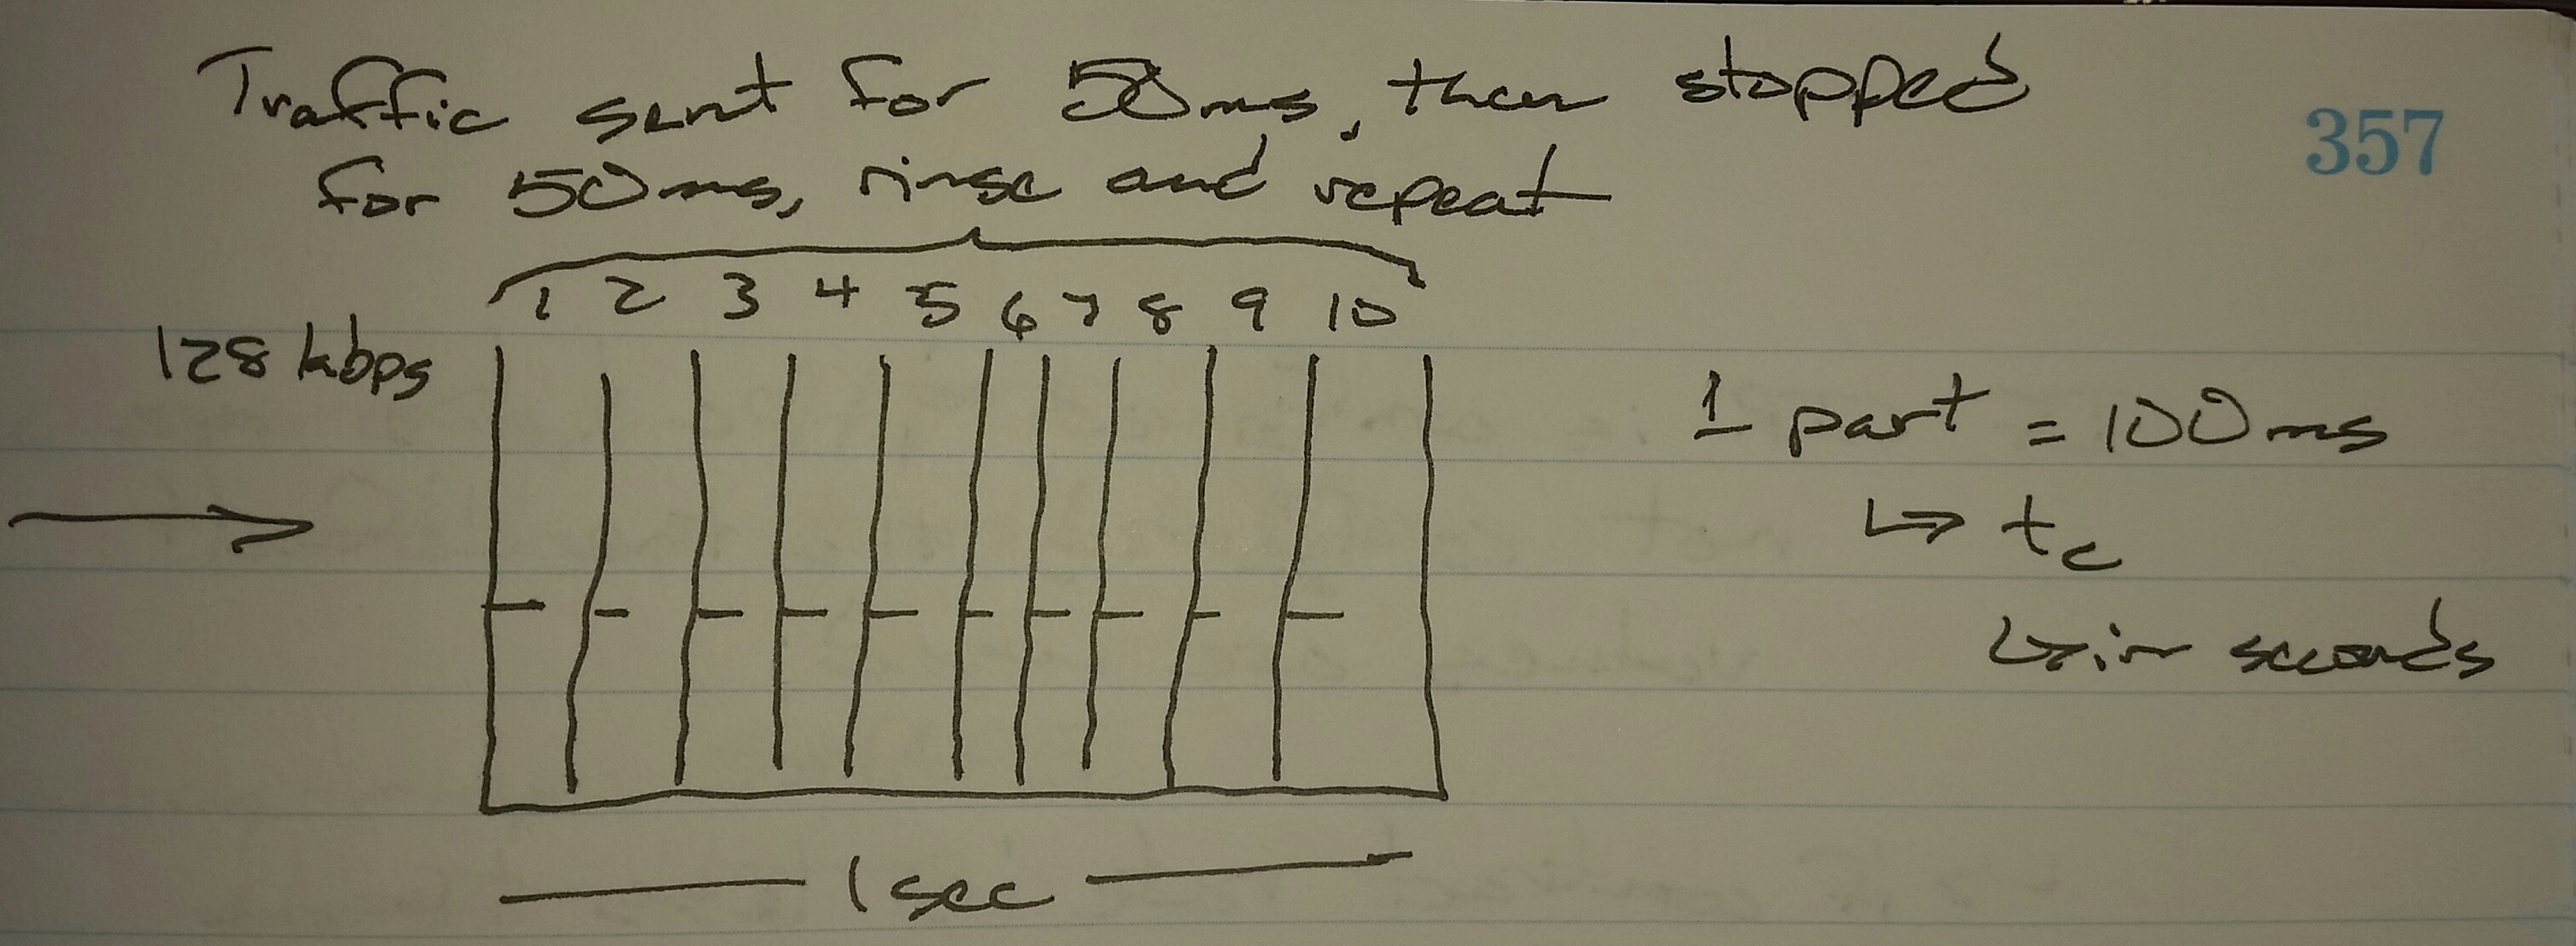 Traffic sent for 50ms, then stopped
357
for 50ms, rinse and repeat
1 2 3 4 5 6 7 8 9 10
128 kbps
1 part = 100ms
↳ tc
↳ in seconds
1 sec